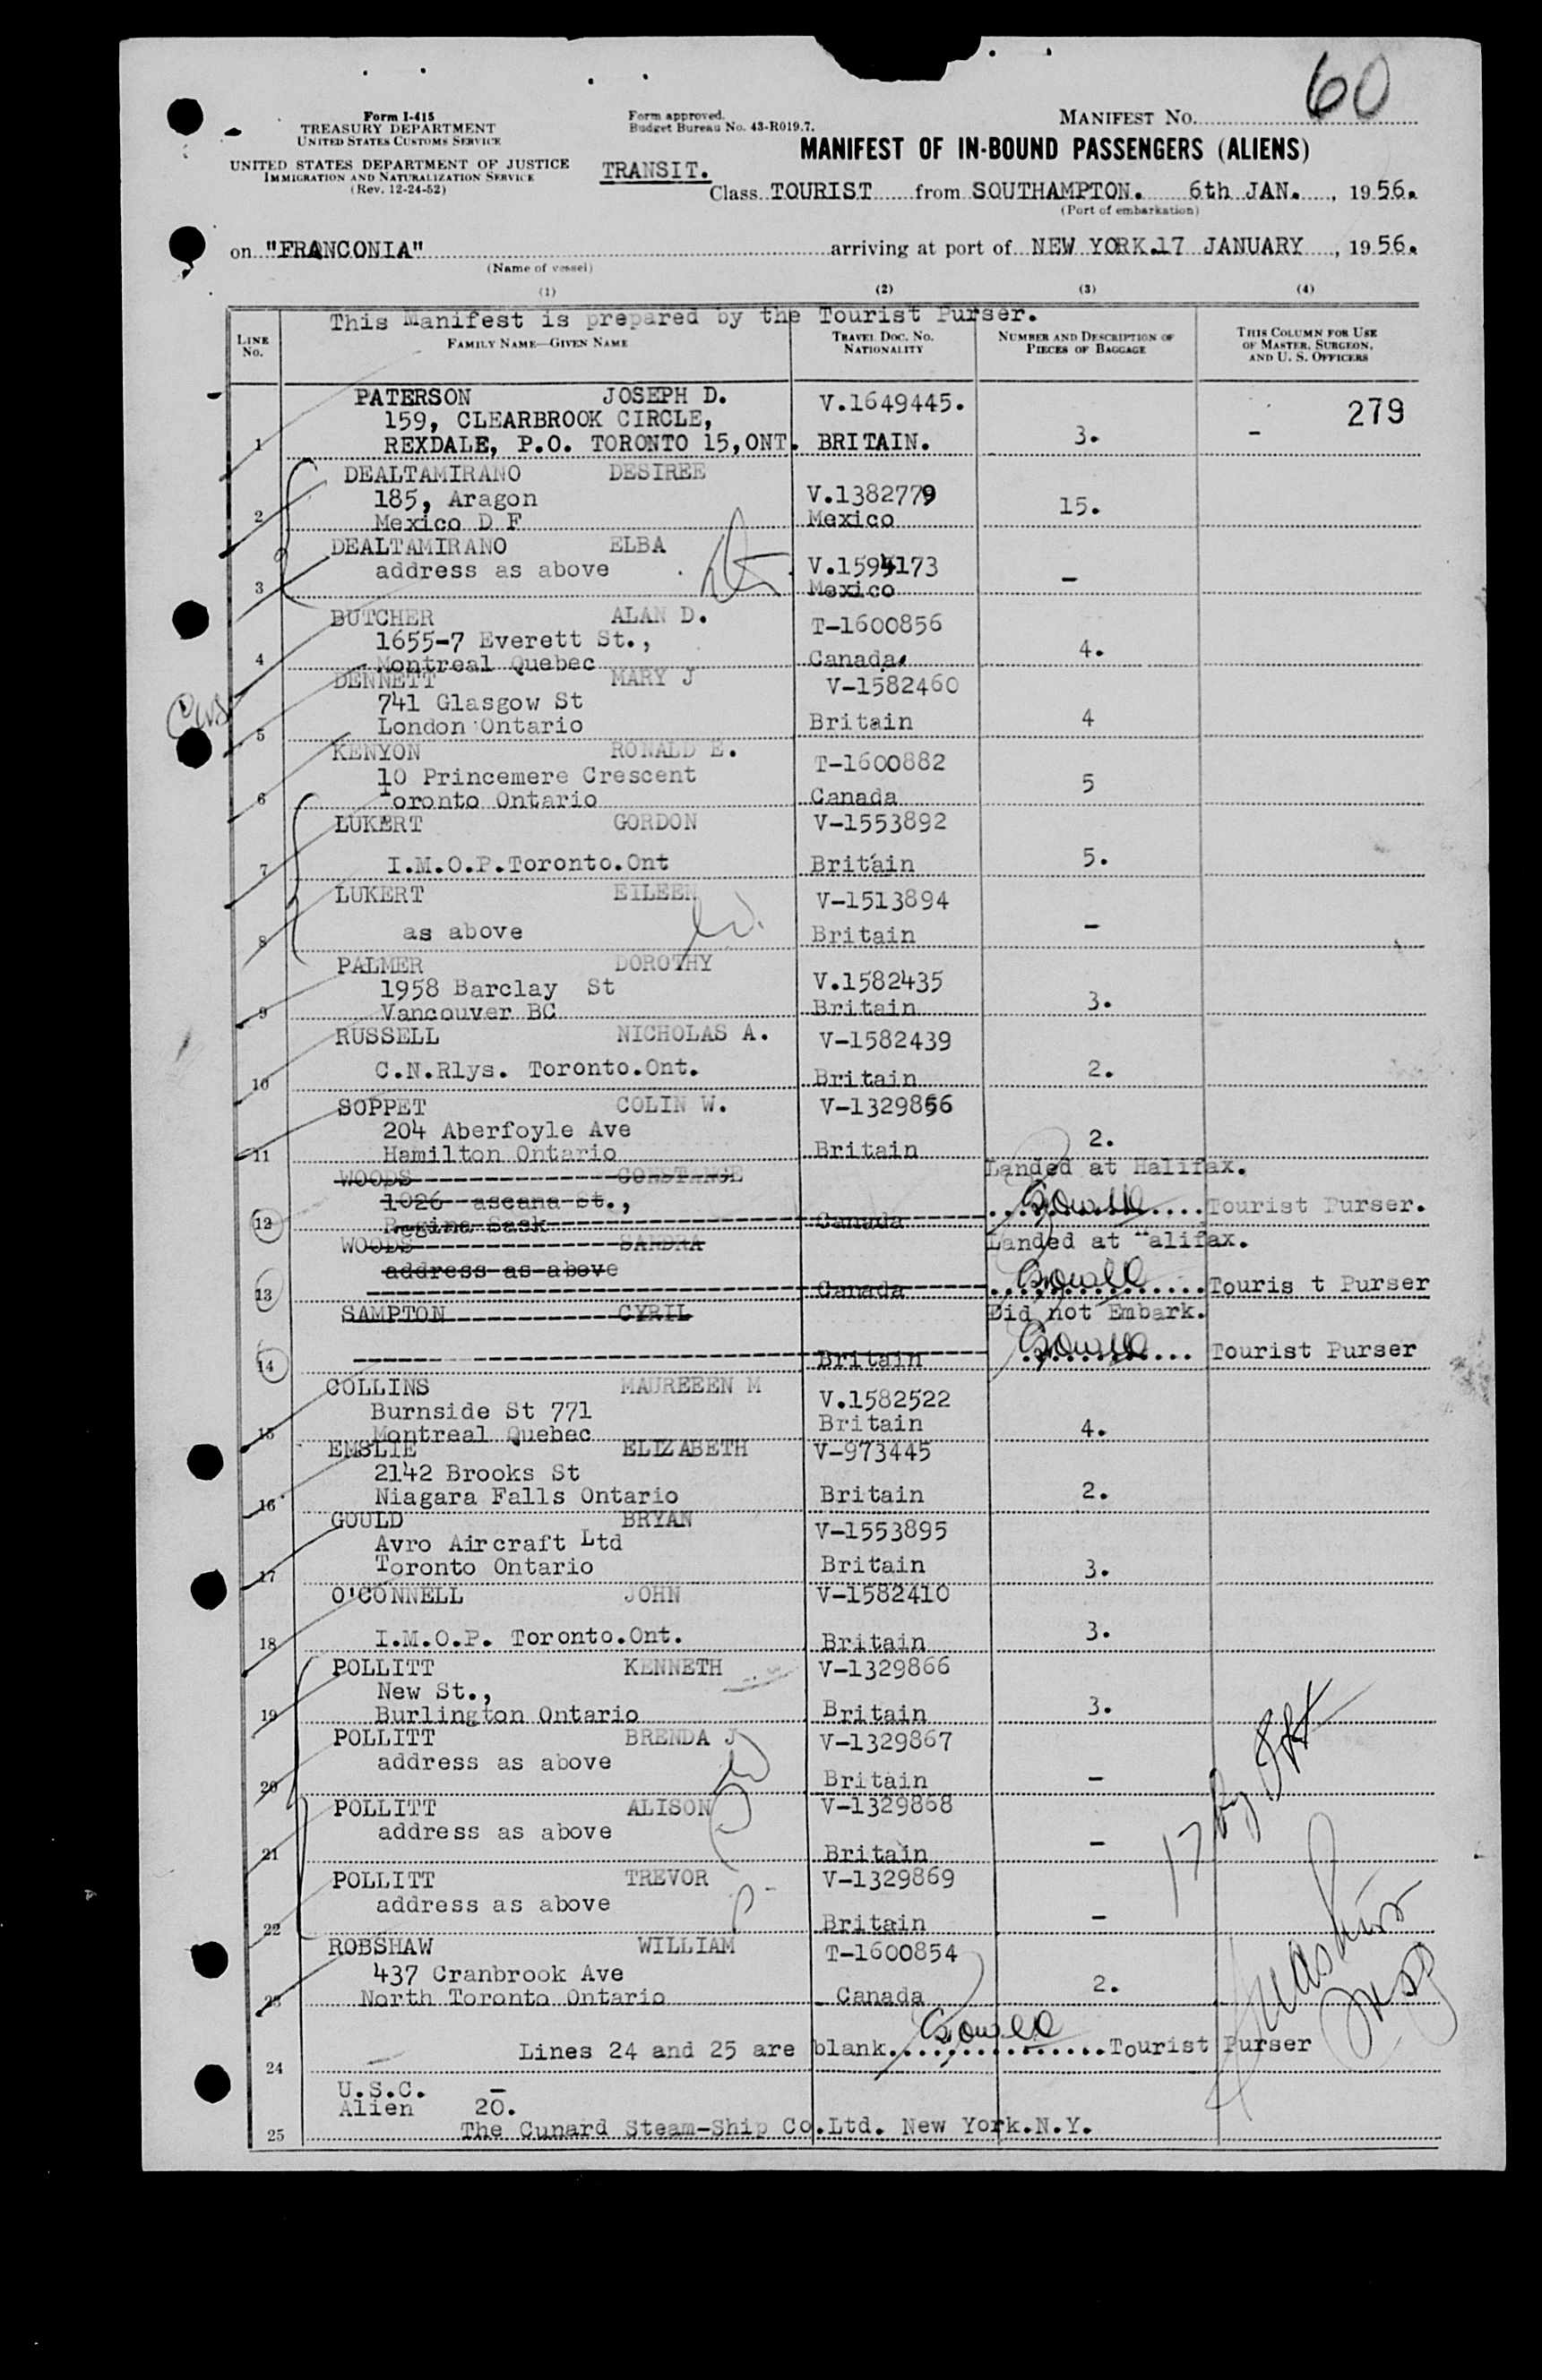 60
Form I-415
TREASURY DEPARTMENT
UNITED STATES CUSTOMS SERVICE
UNITED STATES DEPARTMENT OF JUSTICE
IMMIGRATION AND NATURALIZATION SERVICE
(Rev. 12-24-52)
Form approved.
Budget Bureau No. 43-R019.7.
MANIFEST No.
MANIFEST OF IN-BOUND PASSENGERS (ALIENS)
TRANSIT.
Class TOURIST from SOUTHAMPTON. 6th JAN., 1956.
(Port of embarkation)
on "FRANCONIA" arriving at port of NEW YORK.17 JANUARY, 1956.
(Name of vessel)
(1) (2) (3) (4)
This Manifest is prepared by the Tourist Purser.
LINE No. FAMILY NAME—GIVEN NAME TRAVEL DOC. NO. NATIONALITY NUMBER AND DESCRIPTION OF PIECES OF BAGGAGE THIS COLUMN FOR USE OF MASTER, SURGEON, AND U. S. OFFICERS
PATERSON JOSEPH D. V.1649445. 279
159, CLEARBROOK CIRCLE,
1 REXDALE, P.O. TORONTO 15,ONT. BRITAIN. 3. -
DEALTAMIRANO DESIREE
185, Aragon V.1382779 15.
2 Mexico D F Mexico
DEALTAMIRANO ELBA
address as above V.1594173
3 Mexico -
BUTCHER ALAN D. T-1600856
1655-7 Everett St.,
4 Montreal Quebec Canada. 4.
DENNETT MARY J V-1582460
741 Glasgow St
5 London Ontario Britain 4
KENYON RONALD E. T-1600882
10 Princemere Crescent
6 Toronto Ontario Canada 5
LUKERT GORDON V-1553892
7 I.M.O.P.Toronto.Ont Britain 5.
LUKERT EILEEN V-1513894
8 as above Britain -
PALMER DOROTHY
1958 Barclay St V.1582435
9 Vancouver BC Britain 3.
RUSSELL NICHOLAS A. V-1582439
10 C.N.Rlys. Toronto.Ont. Britain 2.
SOPPET COLIN W. V-1329856
204 Aberfoyle Ave
11 Hamilton Ontario Britain 2.
WOODS CONSTANCE Landed at Halifax.
1026 ascana st., Tourist Purser.
12 Regina Sask Canada
WOODS SANDRA Landed at Halifax.
address as above
13 Canada Touris t Purser
SAMPTON CYRIL Did not Embark.
14 Britain Tourist Purser
COLLINS MAUREEEN M V.1582522
Burnside St 771 Britain
15 Montreal Quebec 4.
EMSLIE ELIZABETH V-973445
2142 Brooks St
16 Niagara Falls Ontario Britain 2.
GOULD BRYAN V-1553895
Avro Aircraft Ltd
17 Toronto Ontario Britain 3.
O'CONNELL JOHN V-1582410
18 I.M.O.P. Toronto.Ont. Britain 3.
POLLITT KENNETH V-1329866
New St.,
19 Burlington Ontario Britain 3.
POLLITT BRENDA J V-1329867
address as above
20 Britain -
POLLITT ALISON V-1329868
address as above
21 Britain -
POLLITT TREVOR V-1329869
address as above
22 Britain -
ROBSHAW WILLIAM T-1600854
437 Cranbrook Ave
23 North Toronto Ontario Canada 2.
24 Lines 24 and 25 are blank. Tourist Purser
U.S.C. -
Alien 20.
25 The Cunard Steam-Ship Co.Ltd. New York.N.Y.